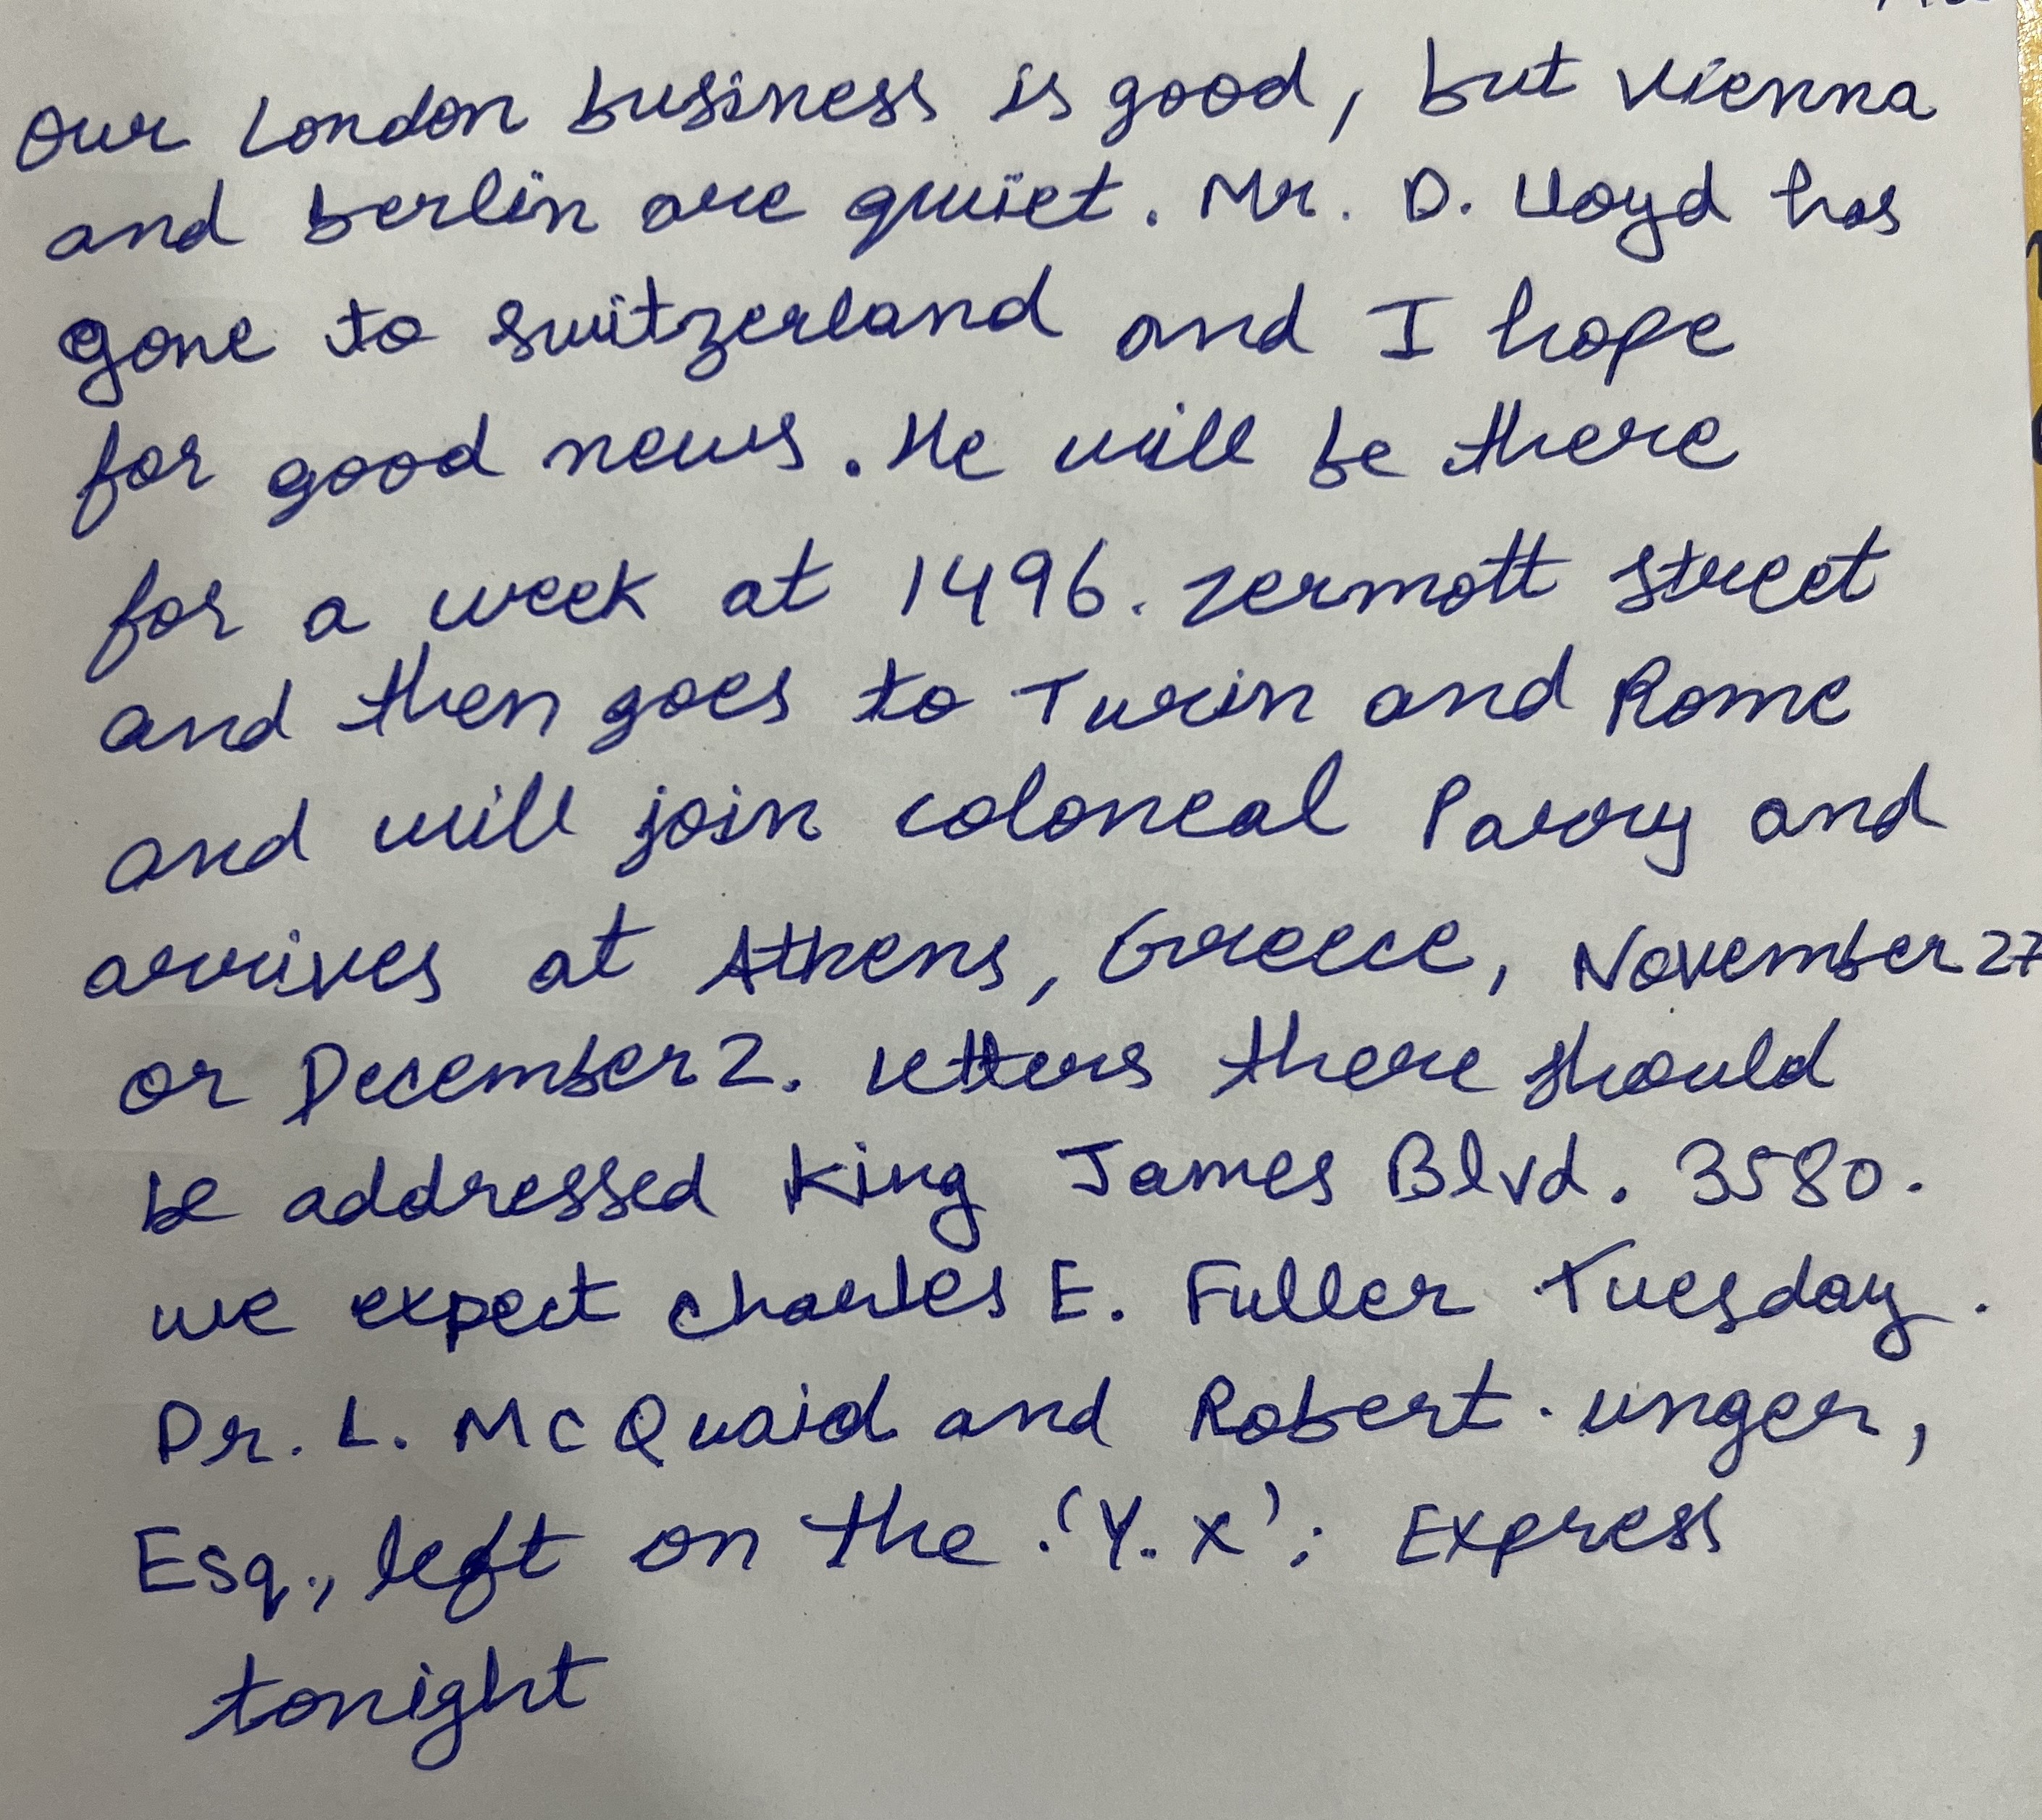 Our London business is good, but Vienna
and berlin are quiet. Mr. D. Lloyd has
gone to switzerland and I hope
for good news. He will be there
for a week at 1496. zermott street
and then goes to Turin and Rome
and will join coloneal Parry and
arrives at Athens, Greece, November 27
or December 2. Letters there should
be addressed King James Blvd. 3580.
we expect charles E. Fuller Tuesday.
Dr. L. McQuaid and Robert. unger,
Esq., left on the .'Y. X': Express
tonight